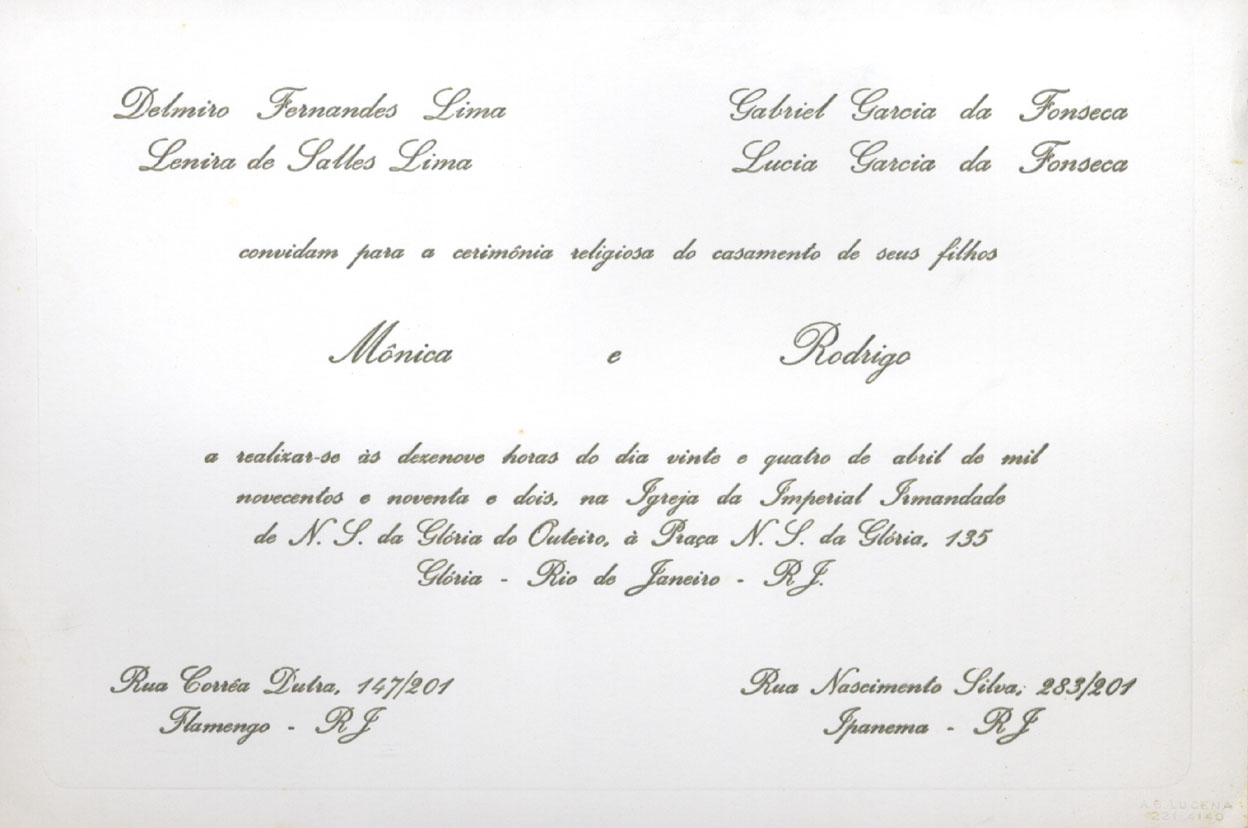 Delmiro Fernandes Lima
Lenira de Salles Lima
Gabriel Garcia da Fonseca
Lucia Garcia da Fonseca
convidam para a cerimônia religiosa do casamento de seus filhos
Mônica e Rodrigo
a realizar-se às dezenove horas do dia vinte e quatro de abril de mil
novecentos e noventa e dois, na Igreja da Imperial Irmandade
de N. S. da Glória do Outeiro, à Praça N. S. da Glória, 135
Glória - Rio de Janeiro - RJ.
Rua Corrêa Dutra, 147/201
Flamengo - RJ
Rua Nascimento Silva, 283/201
Ipanema - RJ
LUCENA